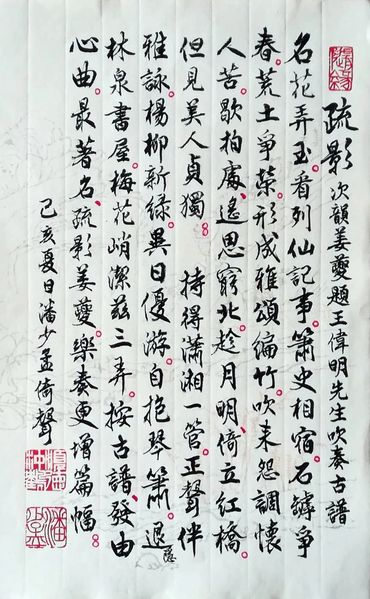 疏影 次韻姜夔題王偉明先生吹奏古譜
名花弄玉。看列仙記事。簫史相宿。石罅爭
春。荒土爭榮。形成雅頌編竹。吹来怨調懷
人苦。歇拍處、遙思窮北。趁月明、倚立紅橋。
但見美人貞獨。 持得瀟湘一管。正聲伴
雅詠。楊柳新綠。異日優游。自抱琴簫。退
林泉書屋。梅花峭潔茲三弄。按古譜、發由
心曲。最著名、疏影姜夔。樂奏更增篇幅。
己亥夏日潘少孟倚聲